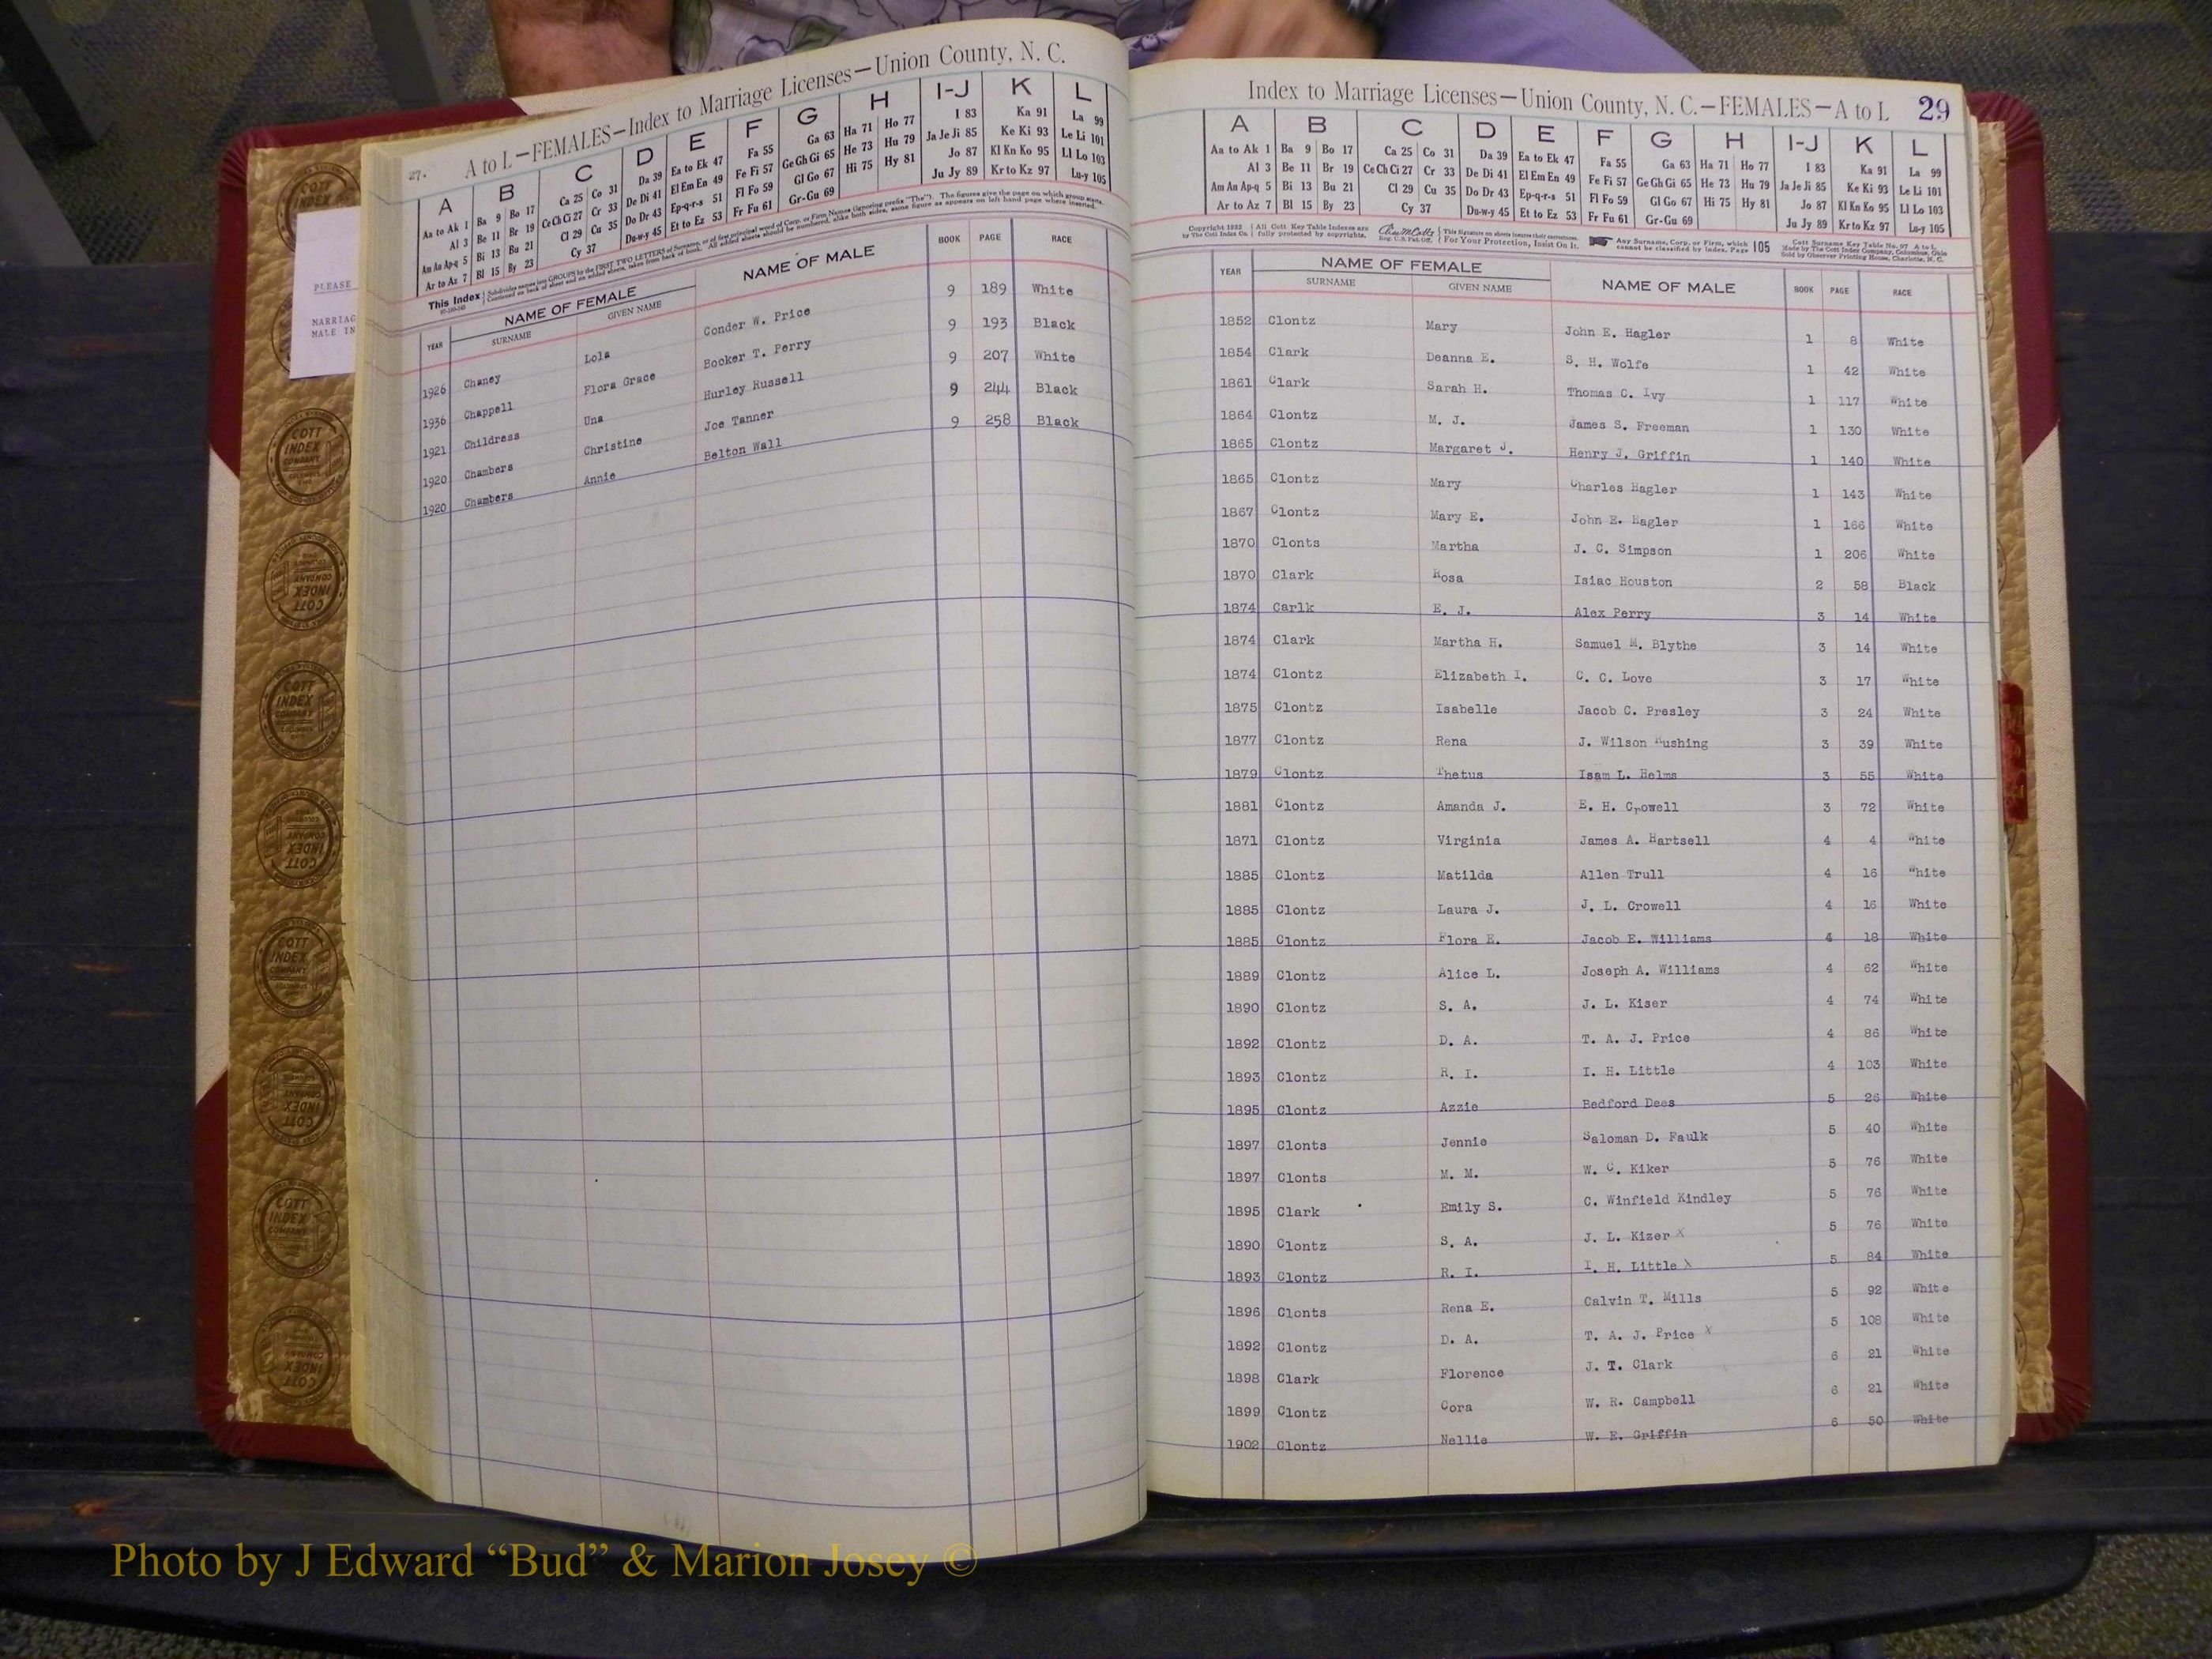 27.
A to L—FEMALES—Index to Marriage Licenses—Union County, N. C.
A B C D E F G H I-J K L
Aa to Ak 1 Ba 9 Bo 17 Ca 25 Co 31 Da 39 Ea to Ek 47 Fa 55 Ga 63 Ha 71 Ho 77 I 83 Ka 91 La 99
Al 3 Be 11 Br 19 Ce Ch Ci 27 Cr 33 De Di 41 El Em En 49 Fe Fi 57 Ge Gh Gi 65 He 73 Hu 79 Ja Je Ji 85 Ke Ki 93 Le Li 101
Am An Ap-q 5 Bi 13 Bu 21 Cl 29 Cu 35 Do Dr 43 Ep-q-r-s 51 Fl Fo 59 Gl Go 67 Hi 75 Hy 81 Jo 87 Kl Kn Ko 95 Ll Lo 103
Ar to Az 7 Bl 15 By 23 Cy 37 Du-w-y 45 Et to Ez 53 Fr Fu 61 Gr-Gu 69 Ju Jy 89 Kr to Kz 97 Lu-y 105
This Index
YEAR NAME OF FEMALE SURNAME GIVEN NAME NAME OF MALE BOOK PAGE RACE
1926 Chaney Lola Conder W. Price 9 189 White
1936 Chappell Flora Grace Booker T. Perry 9 193 Black
1921 Childress Una Hurley Russell 9 207 White
1920 Chambers Christine Joe Tanner 9 244 Black
1920 Chambers Annie Belton Wall 9 258 Black
PLEASE
MARRIAG
MALE IN
COTT INDEX COMPANY
Index to Marriage Licenses—Union County, N. C.—FEMALES—A to L 29
A B C D E F G H I-J K L
Aa to Ak 1 Ba 9 Bo 17 Ca 25 Co 31 Da 39 Ea to Ek 47 Fa 55 Ga 63 Ha 71 Ho 77 I 83 Ka 91 La 99
Al 3 Be 11 Br 19 Ce Ch Ci 27 Cr 33 De Di 41 El Em En 49 Fe Fi 57 Ge Gh Gi 65 He 73 Hu 79 Ja Je Ji 85 Ke Ki 93 Le Li 101
Am An Ap-q 5 Bi 13 Bu 21 Cl 29 Cu 35 Do Dr 43 Ep-q-r-s 51 Fl Fo 59 Gl Go 67 Hi 75 Hy 81 Jo 87 Kl Kn Ko 95 Ll Lo 103
Ar to Az 7 Bl 15 By 23 Cy 37 Du-w-y 45 Et to Ez 53 Fr Fu 61 Gr-Gu 69 Ju Jy 89 Kr to Kz 97 Lu-y 105
For Your Protection, Insist On It. Any Surname, Corp. or Firm, which cannot be classified by Index, Page 105
YEAR NAME OF FEMALE SURNAME GIVEN NAME NAME OF MALE BOOK PAGE RACE
1852 Clontz Mary John E. Hagler 1 8 White
1854 Clark Deanna E. S. H. Wolfe 1 42 White
1861 Clark Sarah H. Thomas C. Ivy 1 117 White
1864 Clontz M. J. James S. Freeman 1 130 White
1865 Clontz Margaret J. Henry J. Griffin 1 140 White
1865 Clontz Mary Charles Hagler 1 143 White
1867 Clontz Mary E. John E. Hagler 1 166 White
1870 Clonts Martha J. C. Simpson 1 206 White
1870 Clark Rosa Isiac Houston 2 58 Black
1874 Carlk E. J. Alex Perry 3 14 White
1874 Clark Martha H. Samuel M. Blythe 3 14 White
1874 Clontz Elizabeth I. C. C. Love 3 17 White
1875 Clontz Isabelle Jacob C. Presley 3 24 White
1877 Clontz Rena J. Wilson Rushing 3 39 White
1879 Clontz Thetus Isam L. Helms 3 55 White
1881 Clontz Amanda J. E. H. Crowell 3 72 White
1871 Clontz Virginia James A. Hartsell 4 4 White
1885 Clontz Matilda Allen Trull 4 16 White
1885 Clontz Laura J. J. L. Crowell 4 16 White
1885 Clontz Flora E. Jacob E. Williams 4 18 White
1889 Clontz Alice L. Joseph A. Williams 4 62 White
1890 Clontz S. A. J. L. Kiser 4 74 White
1892 Clontz D. A. T. A. J. Price 4 86 White
1893 Clontz R. I. I. H. Little 4 103 White
1895 Clontz Azzie Bedford Dees 5 26 White
1897 Clonts Jennie Saloman D. Faulk 5 40 White
1897 Clonts M. M. W. C. Kiker 5 76 White
1895 Clark Emily S. C. Winfield Kindley 5 76 White
1890 Clontz S. A. J. L. Kizer X 5 76 White
1893 Clontz R. I. I. H. Little X 5 84 White
1896 Clonts Rena E. Calvin T. Mills 5 92 White
1892 Clontz D. A. T. A. J. Price X 5 108 White
1898 Clark Florence J. T. Clark 6 21 White
1899 Clontz Cora W. R. Campbell 6 21 White
1902 Clontz Nellie W. E. Griffin 6 50 White
Photo by J Edward “Bud” & Marion Josey ©